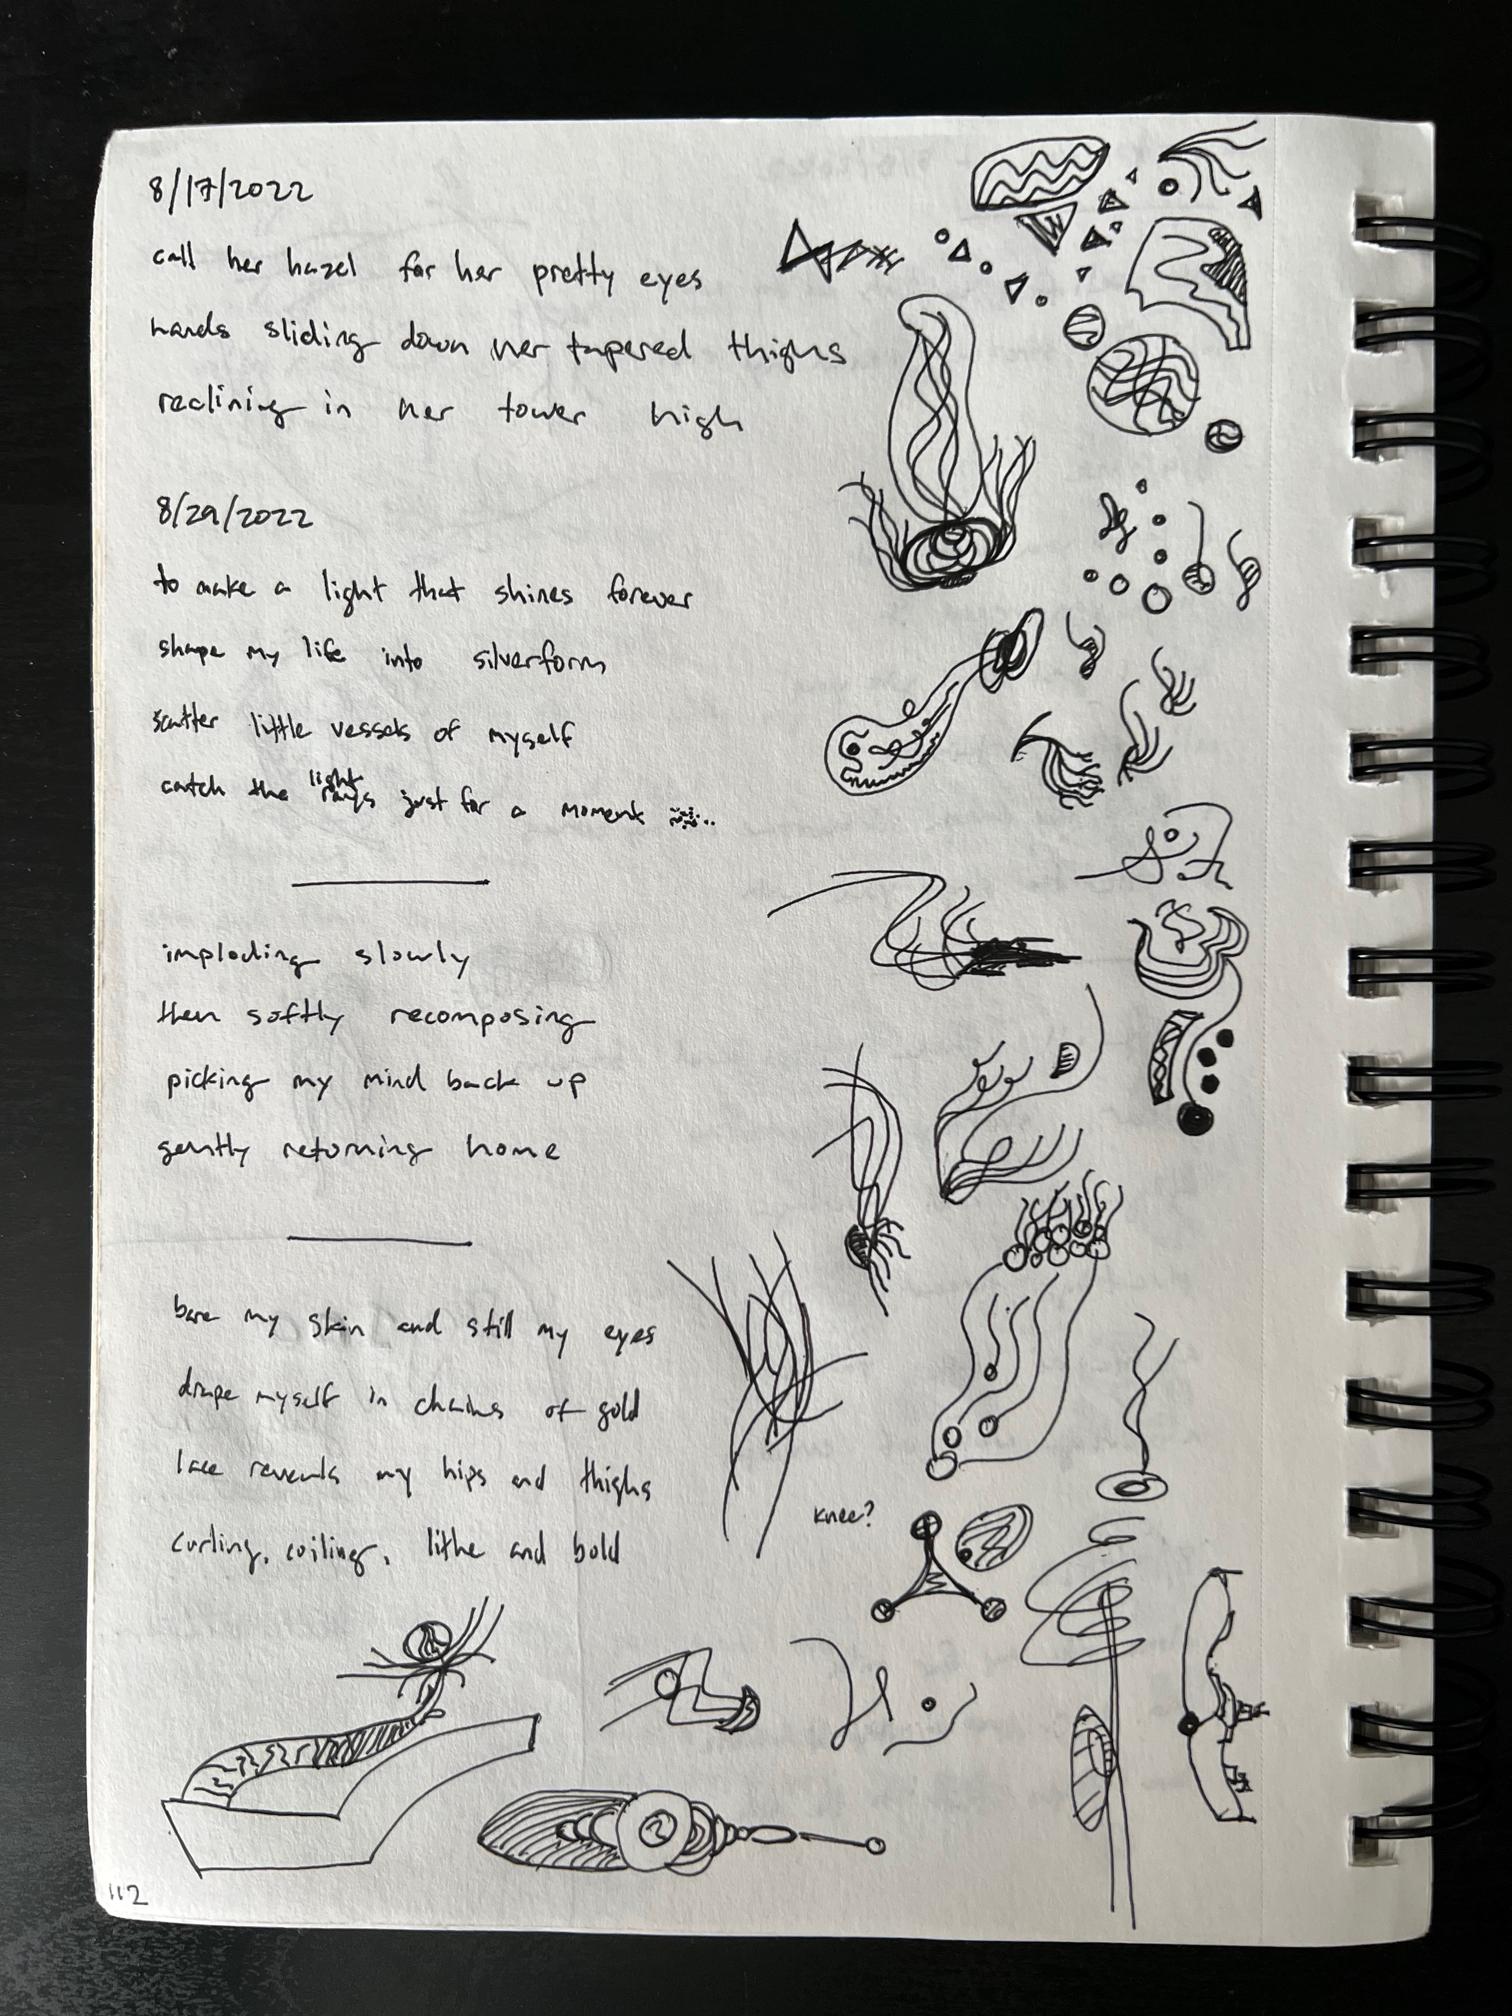 8/17/2022
call her hazel for her pretty eyes
hands sliding down her tapered thighs
reclining in her tower high
8/29/2022
to make a light that shines forever
shape my life into silverform
scatter little vessels of myself
catch the light rays just for a moment
imploding slowly
then softly recomposing
picking my mind back up
gently returning home
bare my skin and still my eyes
drape myself in chains of gold
lace reveals my hips and thighs
curling, coiling, lithe and bold
knee?
112